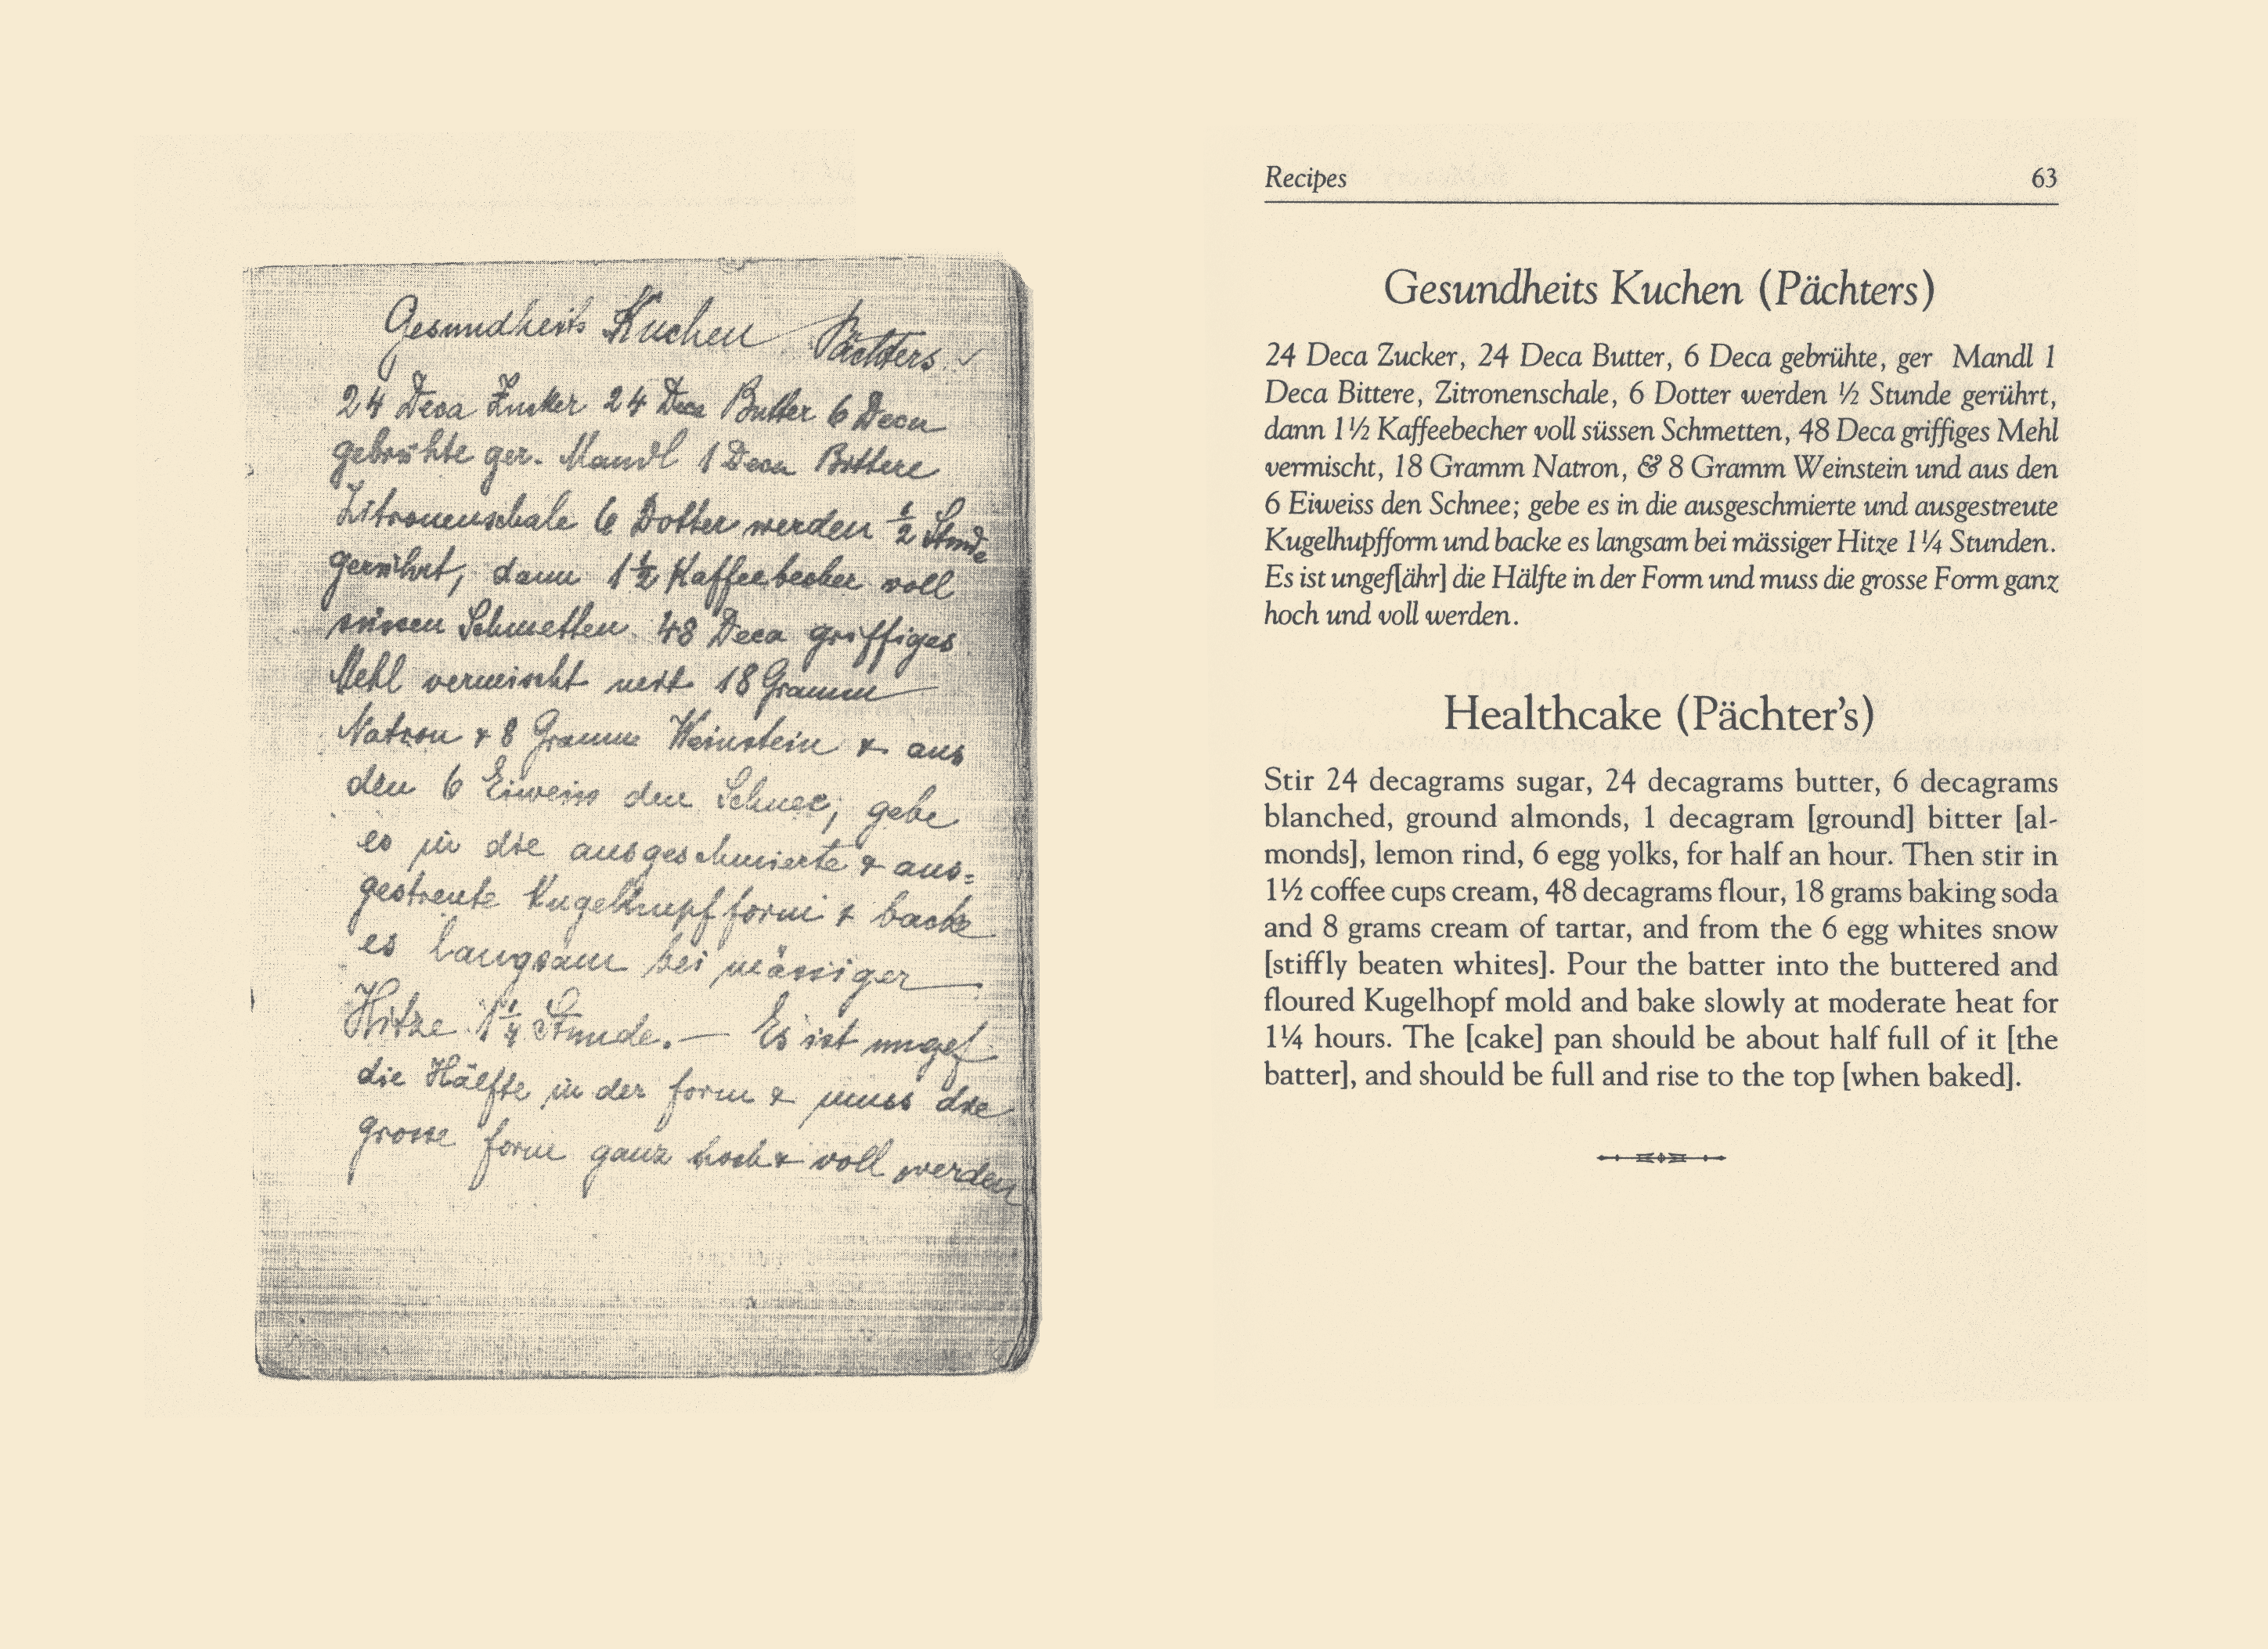 Gesundheits Kuchen Pächters.
24 Deca Zucker 24 Deca Butter 6 Deca
gebrühte ger. Mandl 1 Deca Bittere
Zitronenschale 6 Dotter werden ½ Stunde
gerührt, dann 1½ Kaffeebecher voll
süssen Schmetten 48 Deca griffiges
Mehl vermischt mit 18 Gramm
Natron & 8 Gramm Weinstein & aus
den 6 Eiweiss den Schnee; gebe
es in die ausgeschmierte & aus=
gestreute Kugelhupfform & backe
es langsam bei mässiger
Hitze 1¼ Stunde. — Es ist ungef
die Hälfte in der form & muss die
grosse form ganz hoch & voll werden
Recipes 63
Gesundheits Kuchen (Pächters)
24 Deca Zucker, 24 Deca Butter, 6 Deca gebrühte, ger Mandl 1
Deca Bittere, Zitronenschale, 6 Dotter werden ½ Stunde gerührt,
dann 1½ Kaffeebecher voll süssen Schmetten, 48 Deca griffiges Mehl
vermischt, 18 Gramm Natron, & 8 Gramm Weinstein und aus den
6 Eiweiss den Schnee; gebe es in die ausgeschmierte und ausgestreute
Kugelhupfform und backe es langsam bei mässiger Hitze 1¼ Stunden.
Es ist ungef[ähr] die Hälfte in der Form und muss die grosse Form ganz
hoch und voll werden.
Healthcake (Pächter's)
Stir 24 decagrams sugar, 24 decagrams butter, 6 decagrams
blanched, ground almonds, 1 decagram [ground] bitter [al-
monds], lemon rind, 6 egg yolks, for half an hour. Then stir in
1½ coffee cups cream, 48 decagrams flour, 18 grams baking soda
and 8 grams cream of tartar, and from the 6 egg whites snow
[stiffly beaten whites]. Pour the batter into the buttered and
floured Kugelhopf mold and bake slowly at moderate heat for
1¼ hours. The [cake] pan should be about half full of it [the
batter], and should be full and rise to the top [when baked].